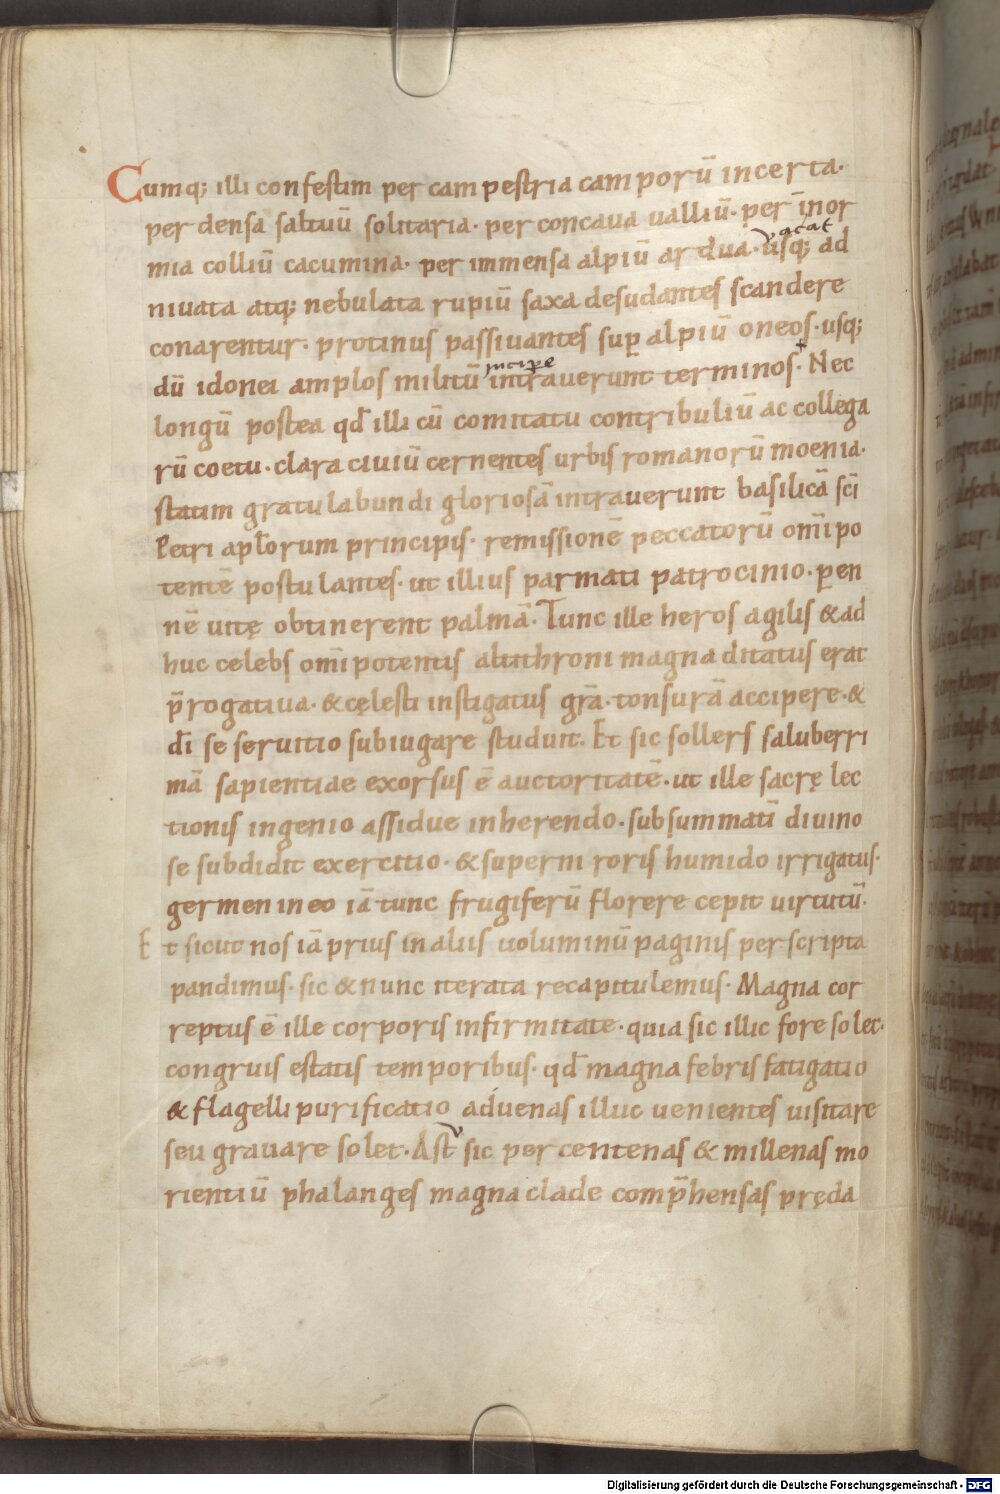 Cumq; illi confestim per campestria camporū incerta·
per densa saltuū solitaria· per concaua ualliū· per inor
vacat
mia colliū cacumina· per immensa alpiū ardua· usq; ad
niuata atq; nebulata rupiū saxa desudantes scandere
conarentur· protinus passiuantes suꝑ alpiū oneos· usq;
incipe
dū idonei amplos militū intrauerunt terminos· Nec
longū postea qđ illi cū comitatu contribuliū ac collega
rū coetu· clara ciuiū cernentes urbis romanorū moenia·
statim gratulabundi gloriosā intrauerunt basilicā sc̄i
Petri aplorum principis· remissionē peccatorū om̄ipo
tentē postulantes· ut illius parmati patrocinio· ꝑen
nē uitę obtinerent palmā· Tunc ille heros agilis & ad
huc celebs om̄ipotentis altithroni magna ditatus erat
p̄rogatiua· & cęlesti instigatus grā· tonsurā accipere· &
dī se seruitio subiugare studuit· Et sic sollers saluberri
mā sapientiae exorsus ē auctoritatē· ut ille sacrę lec
tionis ingenio assidue inherendo· subsummatī diuino
se subdidit exercitio· & superni roris humido irrigatus·
germen in eo iā tunc frugiferū florere cepit uirtutū·
Et sicut nos iā prius in aliis uoluminū paginis perscripta
pandimus· sic & nunc iterata recapitulemus· Magna cor
reptus ē ille corporis infirmitate· quia sic illic fore solet·
congruis estatis temporibus· qđ magna febris fatigatio
& flagelli purificatio aduenas illuc uenientes uisitare
seu grauare solet· Ast sic per centenas & millenas mo
rientiū phalanges magna clade comp̄hensas pręda
Digitalisierung gefördert durch die Deutsche Forschungsgemeinschaft - DFG